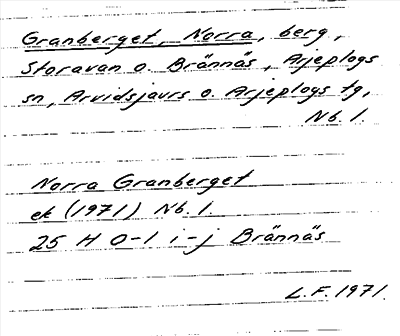 Granberget, Norra, berg,
Storavan o. Brännäs, Arjeplogs
sn, Arvidsjaurs o. Arjeplogs tg,
Nb. 1.
Norra Granberget
ek (1971) Nb. 1.
25 H 0-1 i-j Brännäs
L.F. 1971.